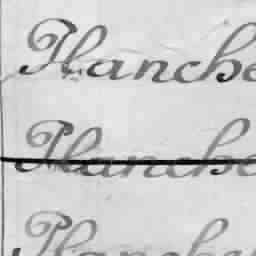 Planche
Planche
Planche